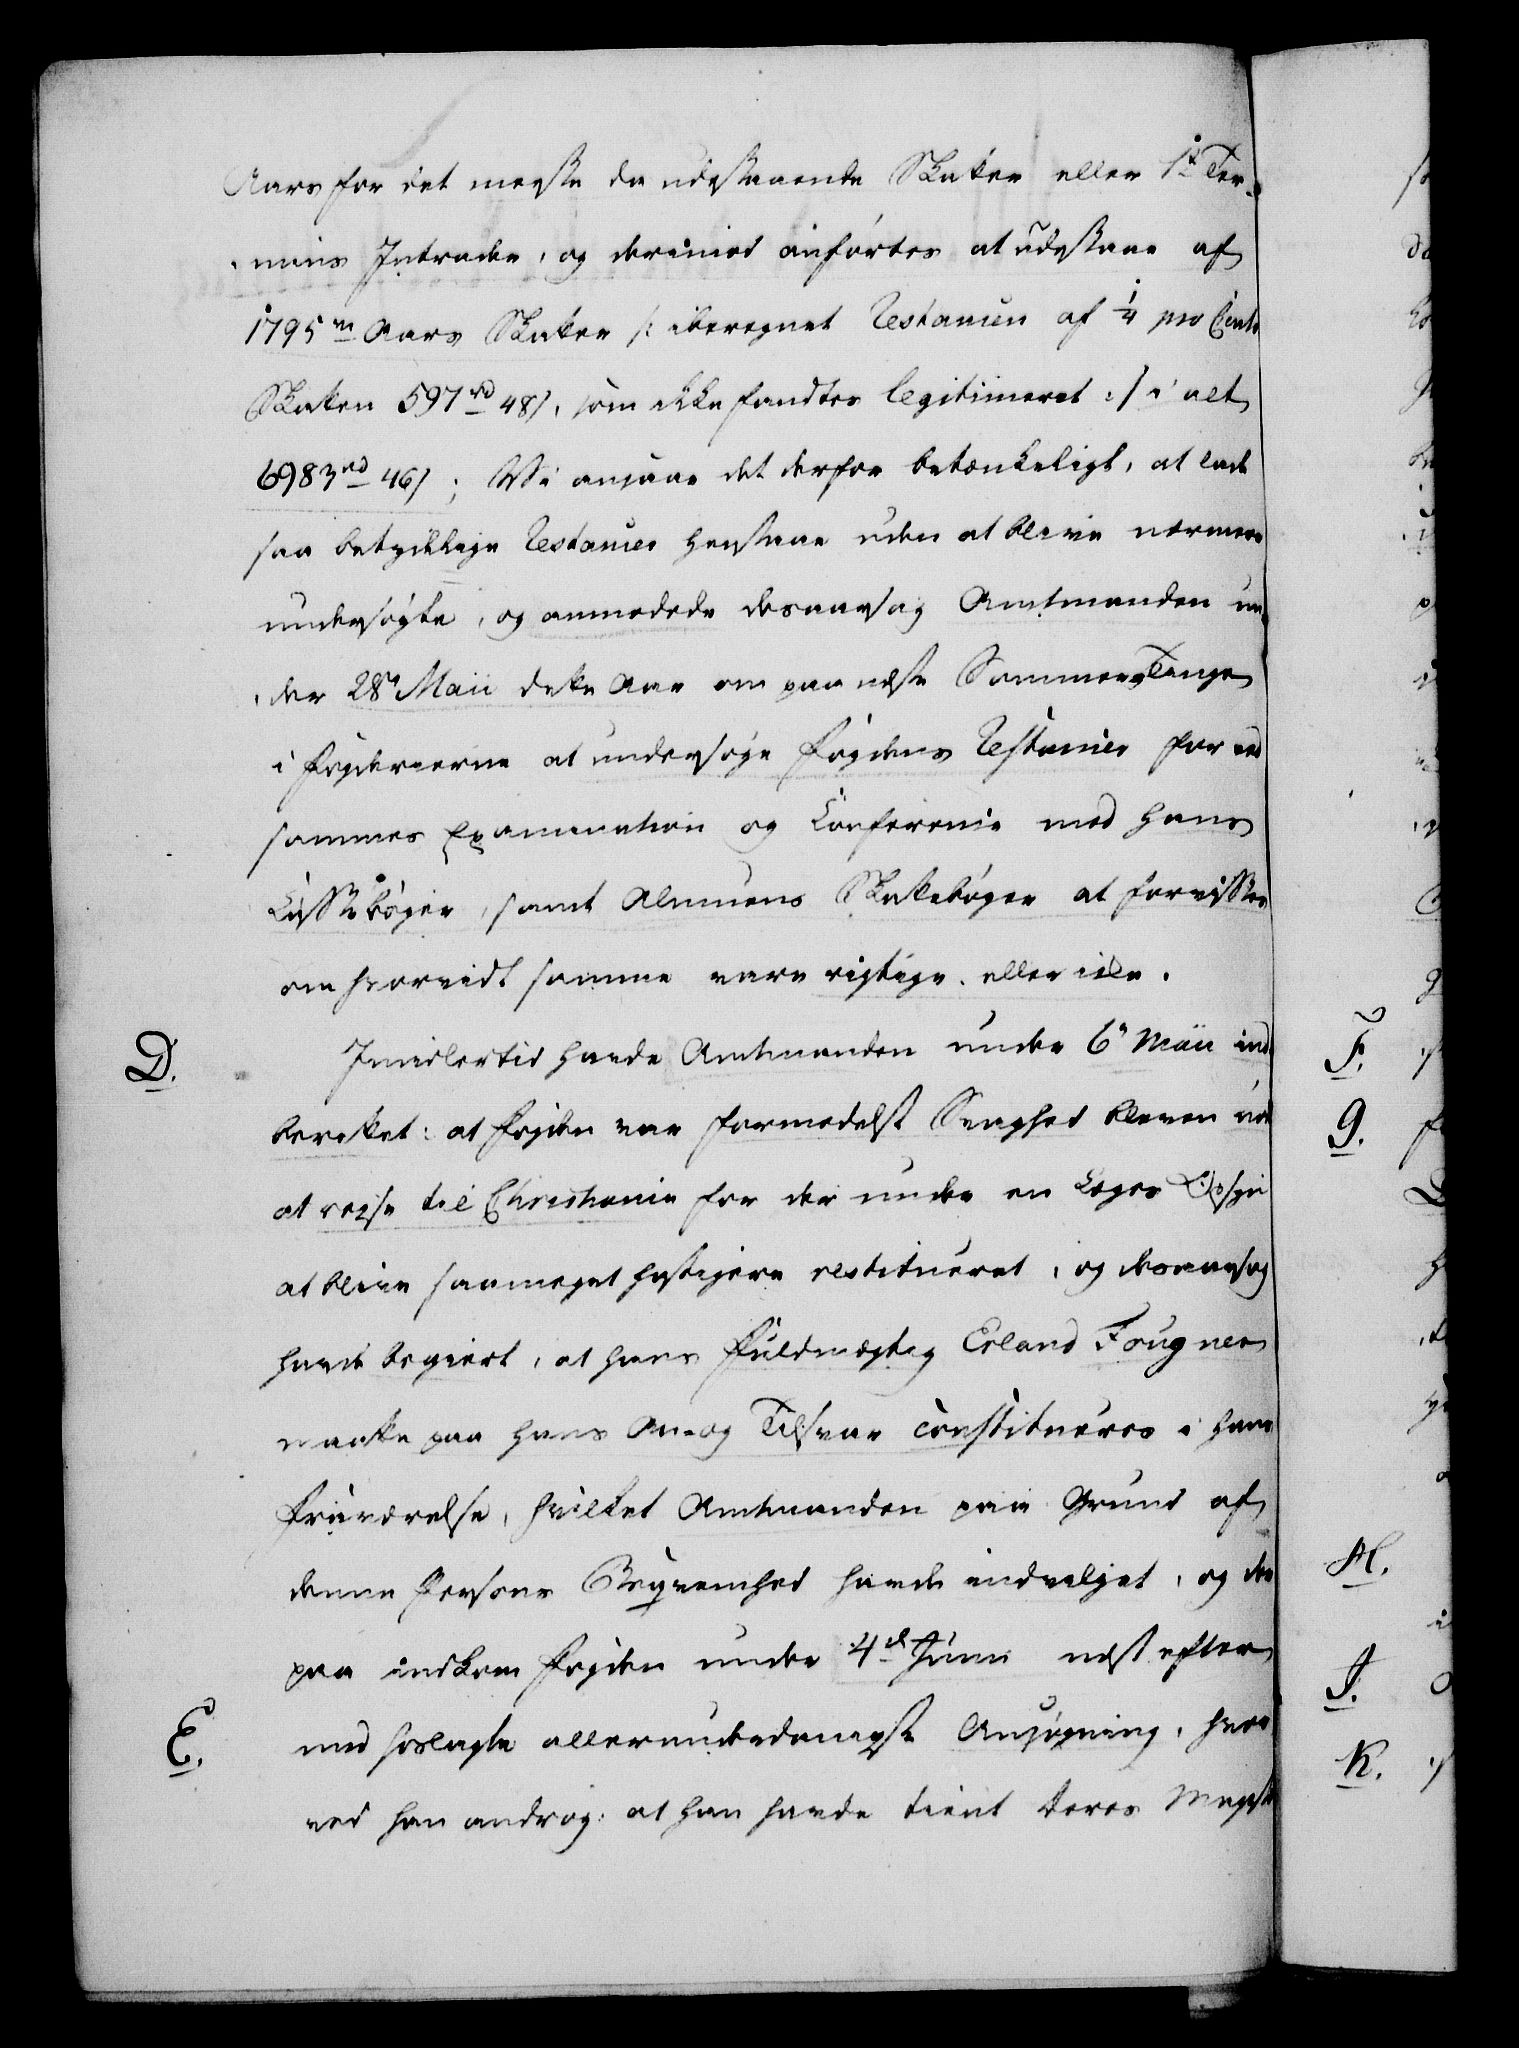 Aars for det meeste da udestaaende Skatter eller 1te Ter-
mins Intrader, og derimod anførtes at udestaae af
1795m Aars Skatter /: iberegnet Restancen af 1/4 pro Cento
Skatten 597rd 48s, som ikke fandtes legitimeret :/ i alt
6983rd 46s; Vi ansaae det derfor betænkeligt, at lade
saa betydelige Restancer henstaae uden at blive nærmere
undersøgte, og anmodede desaarsag Amtmanden un-
der 28n Maii dette Aar om paa næste Sommer Tinge
i Fogderierne at undersøge Fogdens Restancer for ved
sammes Examination og Conference med hans
Casse bøger, samt Almuens Skattebøger at forvisses
om hvorvidt samme vare rigtige eller ikke.
D. Imidlertid havde Amtmanden under 6n Maii ind-
berettet: at Fogden var formedelst Svaghed bleven nød
at reyse til Christiania for der under en Læges Opsyn
at blive saameget hastigere restitueret, og desaarsag
havde begiert, at hans Fuldmægtig Erland Fougner
maatte paa hans An- og Tilsvar constitueres i hans
Fraværelse, hvilket Amtmanden paa Grund af
denne Persons Beqvemhed havde indvilget, og der
paa indkom Fogden under 4de Junii næst efter
E. med hoslagte allerunderdanigste Ansøgning, hvor
ved han androg: at han havde tient Deres Mayst
F.
G.
H.
I.
K.